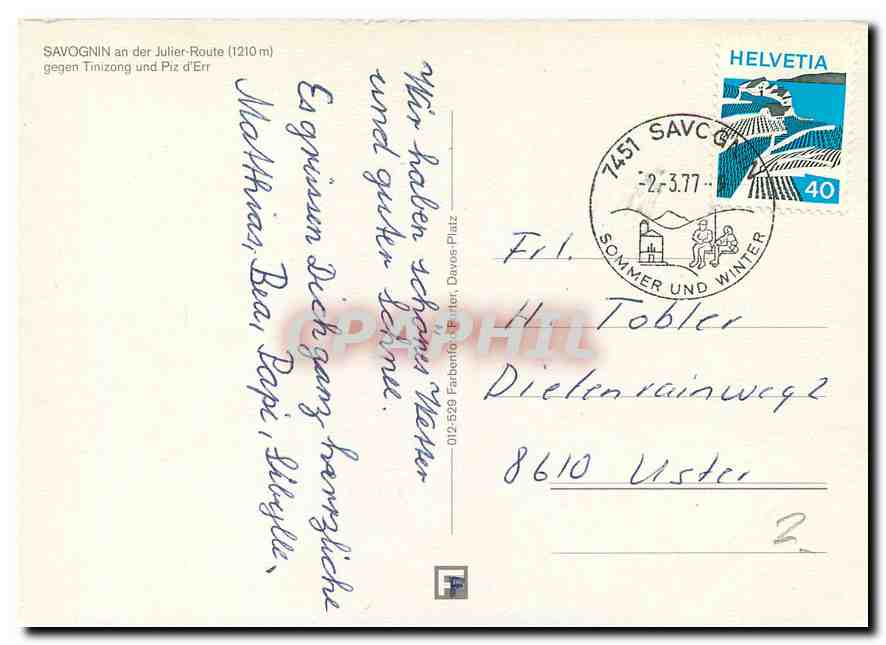 SAVOGNIN an der Julier-Route (1210 m)
gegen Tinizong und Piz d'Err
Wir haben schönes Wetter
und guter Schnee.
Es grüssen Dich ganz herrzliche
Matthias, Bea, Papi, Sibylle.
012-529 Farbenfoto Furter, Davos-Platz
CPAPHIL
HELVETIA
40
7451 SAVOGNIN
-2.-3.77-9
SOMMER UND WINTER
Frl.
H. Tobler
Dietenrainweg 2
8610 Uster
2.
F